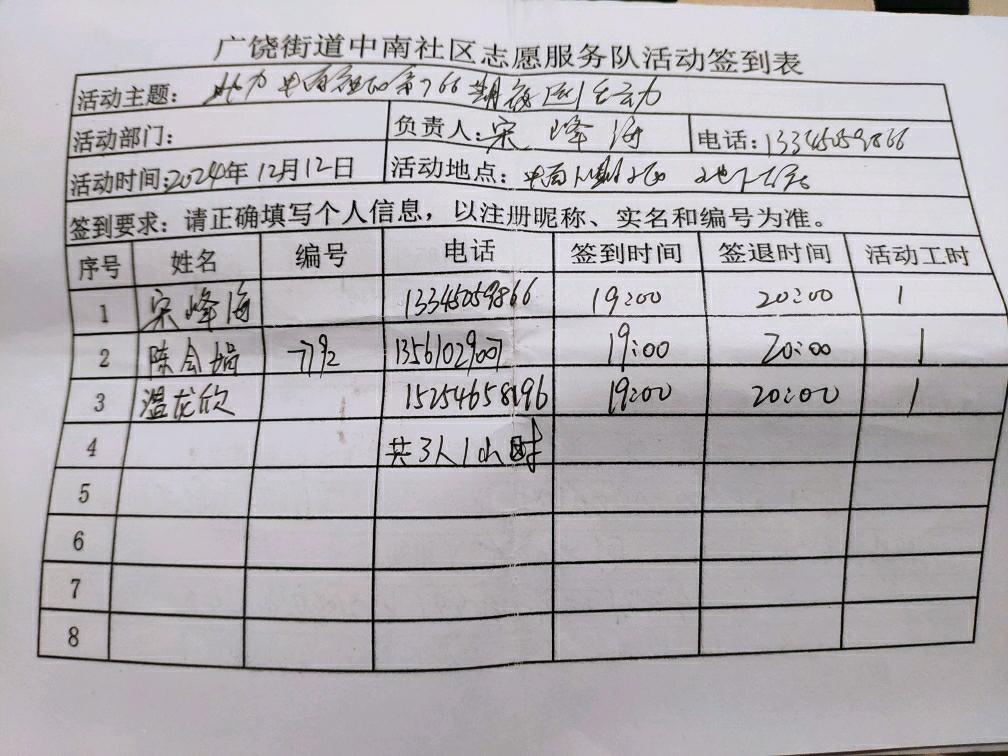 广饶街道中南社区志愿服务队活动签到表
活动主题: 第766期
活动部门: 负责人: 宋峰海 电话: 13345059866
活动时间: 2024年12月12日 活动地点: 中南
签到要求: 请正确填写个人信息, 以注册昵称、实名和编号为准。
序号 姓名 编号 电话 签到时间 签退时间 活动工时
1 宋峰海 13345059866 19:00 20:00 1
2 陈会娟 7192 13561029007 19:00 20:00 1
3 温龙欣 15254658196 19:00 20:00 1
4 共3人1小时
5
6
7
8